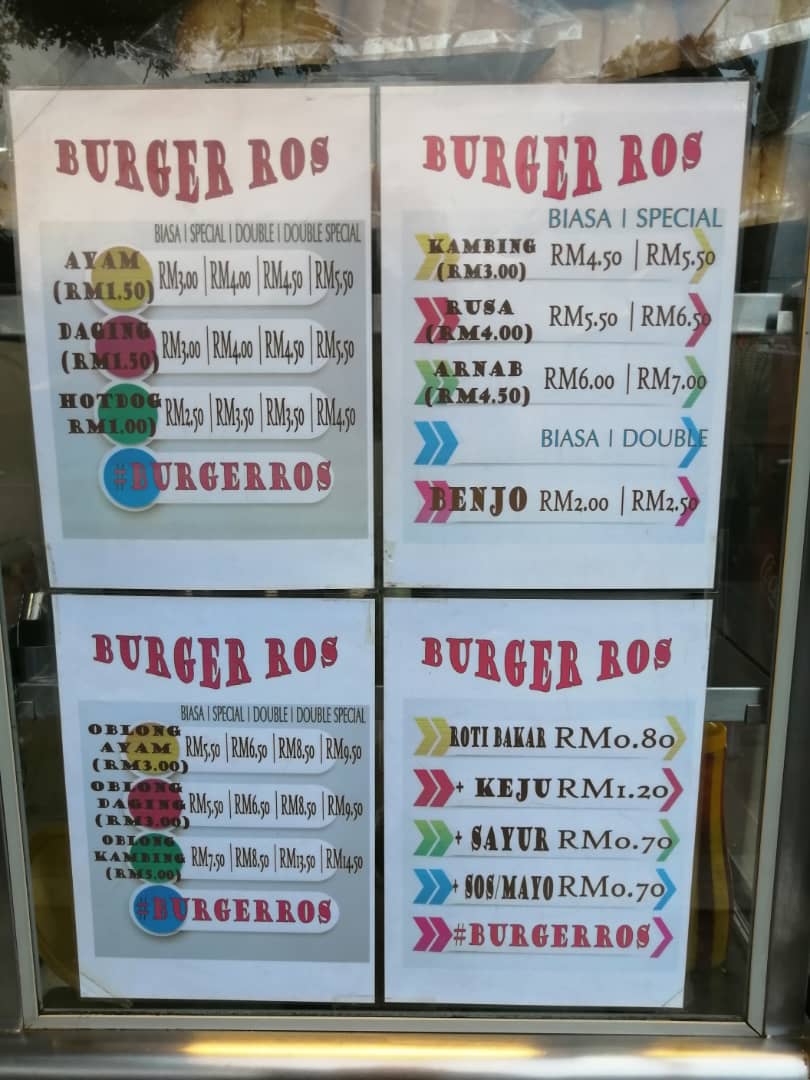 BURGER ROS
BIASA | SPECIAL | DOUBLE | DOUBLE SPECIAL
AYAM
(RM1.50) RM3.00 | RM4.00 | RM4.50 | RM5.50
DAGING
(RM1.50) RM3.00 | RM4.00 | RM4.50 | RM5.50
HOTDOG
RM1.00) RM2.50 | RM3.50 | RM3.50 | RM4.50
#BURGERROS
BURGER ROS
BIASA | SPECIAL
KAMBING
(RM3.00) RM4.50 | RM5.50
RUSA
(RM4.00) RM5.50 | RM6.50
ARNAB
(RM4.50) RM6.00 | RM7.00
BIASA | DOUBLE
BENJO RM2.00 | RM2.50
BURGER ROS
BIASA | SPECIAL | DOUBLE | DOUBLE SPECIAL
OBLONG
AYAM
(RM3.00) RM5.50 | RM6.50 | RM8.50 | RM9.50
OBLONG
DAGING
(RM3.00) RM5.50 | RM6.50 | RM8.50 | RM9.50
OBLONG
KAMBING
(RM5.00) RM7.50 | RM8.50 | RM13.50 | RM14.50
#BURGERROS
BURGER ROS
ROTI BAKAR RM0.80
+ KEJU RM1.20
+ SAYUR RM0.70
+ SOS/MAYO RM0.70
#BURGERROS